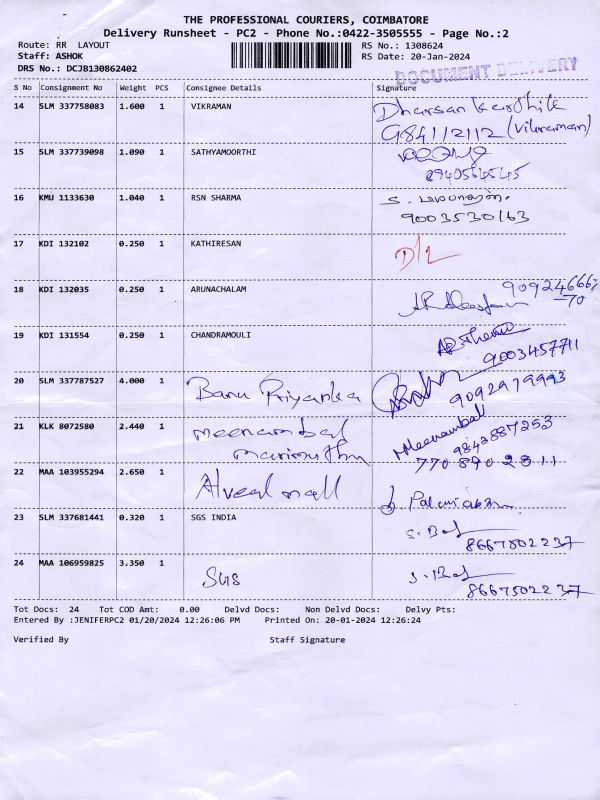 THE PROFESSIONAL COURIERS, COIMBATORE
Delivery Runsheet - PC2 - Phone No.:0422-3505555 - Page No.:2
Route: RR LAYOUT RS No.: 1308624
Staff: ASHOK RS Date: 20-Jan-2024
DRS No.: DCJB130862402
DOCUMENT DELIVERY
S No Consignment No Weight PCS Consignee Details Signature
14 SLM 337758083 1.600 1 VIKRAMAN Dharsan Karthik
984112112 (Vikraman)
15 SLM 337739098 1.090 1 SATHYAMOORTHI
8940564545
16 KMU 1133630 1.040 1 RSN SHARMA
9003530163
17 KDI 132102 0.250 1 KATHIRESAN D/L
18 KDI 132035 0.250 1 ARUNACHALAM
70
19 KDI 131554 0.250 1 CHANDRAMOULI
9003457711
20 SLM 337787527 4.000 1 Banu Priyanka
9092979993
21 KLK 8072580 2.440 1 meenambal Meenambal
marimuthu 9842887253
770 890 2811
22 MAA 103955294 2.650 1
23 SLM 337681441 0.320 1 SGS INDIA
8667502237
24 MAA 106959825 3.350 1 SGS
8667502237
Tot Docs: 24 Tot COD Amt: 0.00 Delvd Docs: Non Delvd Docs: Delvy Pts:
Entered By :JENIFERPC2 01/20/2024 12:26:06 PM Printed On: 20-01-2024 12:26:24
Verified By Staff Signature